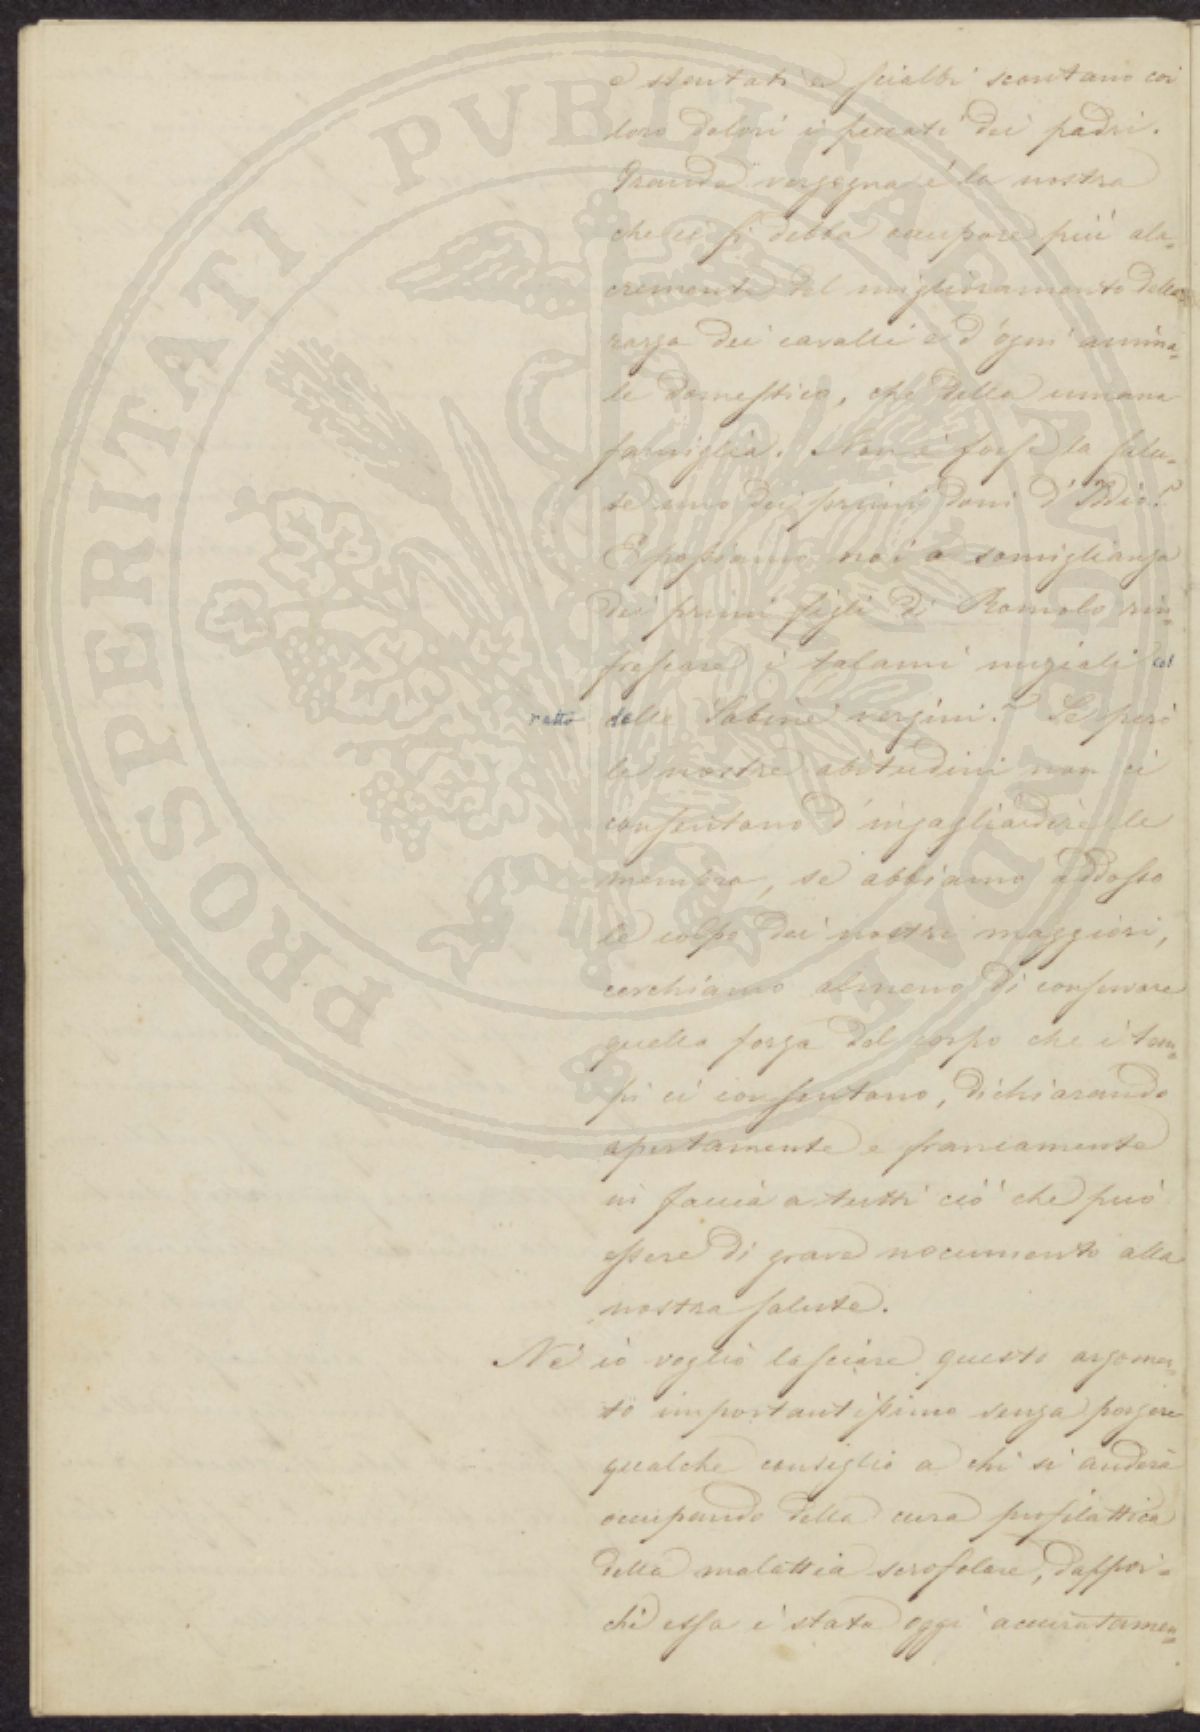 e stentati e scialbi scontano coi
loro dolori i peccati dei padri.
Grande vergogna è la nostra
che ci si debba occupare più ala-
cremente del miglioramento della
razza dei cavalli e d'ogni anima-
le domestico, che della umana
famiglia. Non è forse la salu-
te uno dei primi doni d'Iddio?
E possiamo noi a somiglianza
dei primi figli di Romolo rin-
frescare i talami nuziali col
ratto delle Sabine vergini? Se però
le nostre abitudini non ci
consentono d'ingagliardire le
membra, se abbiamo addosso
le colpe dei nostri maggiori,
cerchiamo almeno di conservare
quella forza del corpo che i tem-
pi ci consentono, dichiarando
apertamente e francamente
in faccia a tutti ciò che può
essere di grave nocumento alla
nostra salute.
Nè io voglio lasciare questo argomen-
to importantissimo senza porgere
qualche consiglio a chi si anderà
occupando della cura profilattica
della malattia scrofolare, dappoi-
chè essa è stata oggi accuratamen-
PROSPERITATI PVBLICAE AVGENDAE